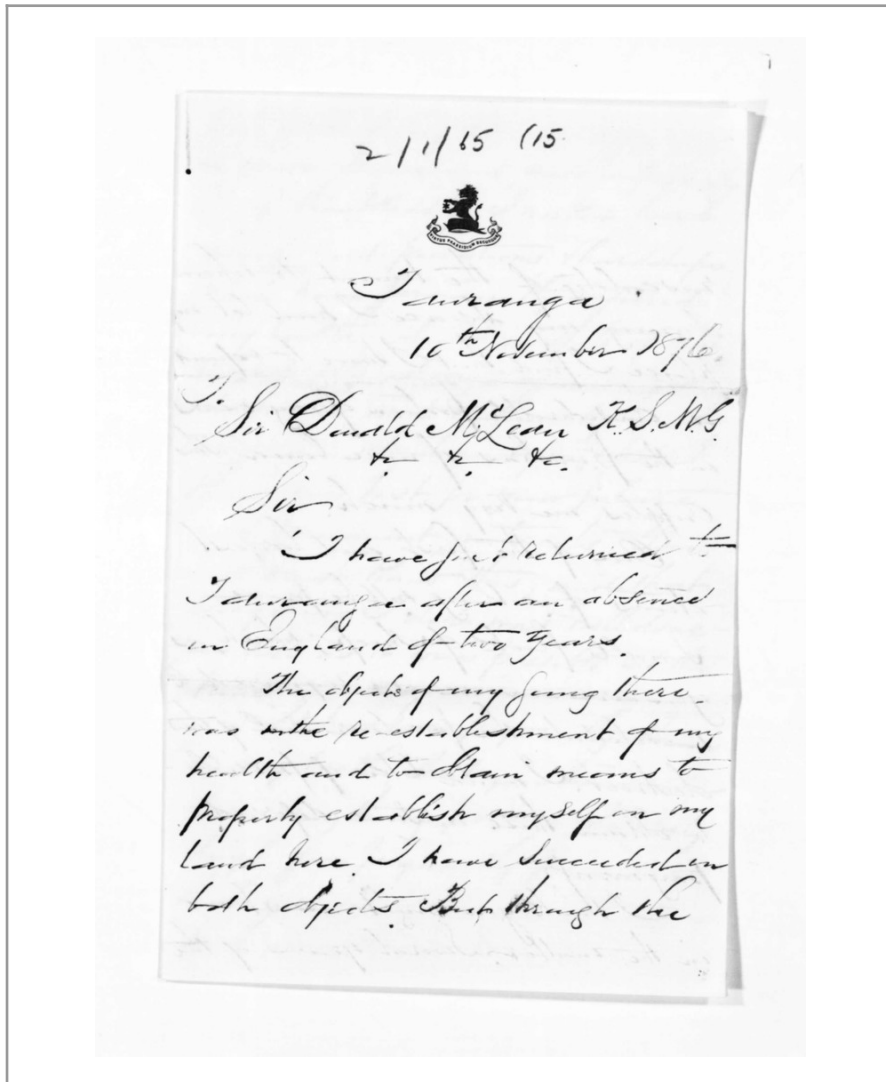 2/1/65 (15
Tauranga
10th November 1876.
To
Sir Donald McLean K.S.M.G.
&c. &c. &c.
Sir
I have just returned to
Tauranga after an absence
in England of two years.
The objects of my going there
was the re-establishment of my
health and to obtain means to
properly establish myself on my
land here. I have succeeded in
both objects. But through the